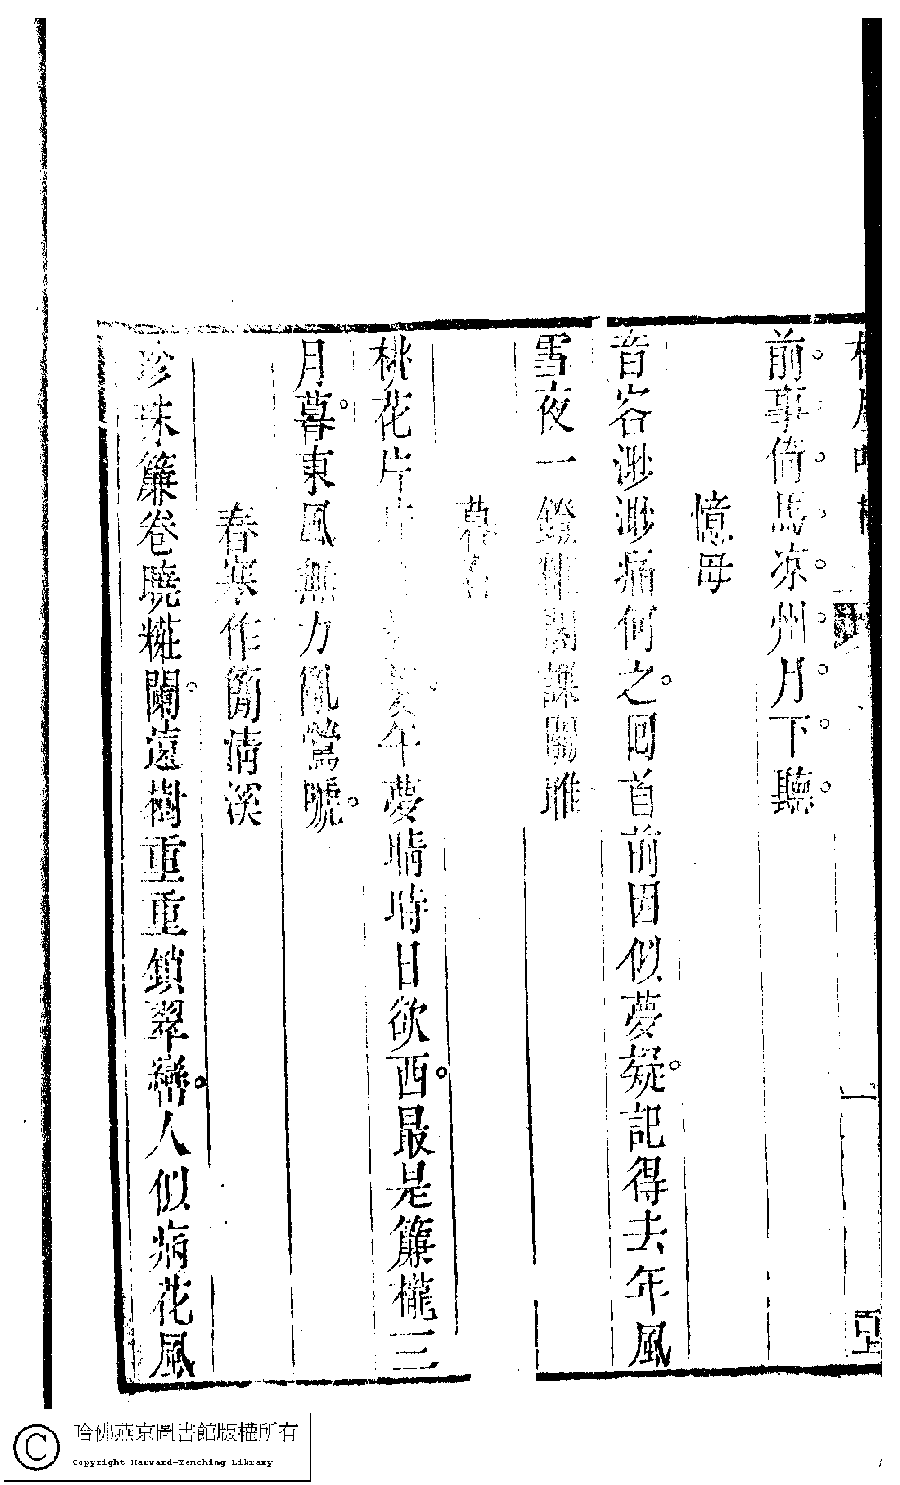 前事倚馬凉州月下聽
憶母
音容渺渺痛何之回首前因似夢疑記得去年風
雪夜一鐙雒閣課關雎
暮春
桃花片片年夢啼時日欲西最是簾櫳三
月暮東風無力亂鶯號
春寒作簡清溪
珍珠簾卷曉糚闌遠樹重重鎖翠巒人似病花風
哈佛燕京圖書館版權所有
Copyright Harvard-Yenching Library